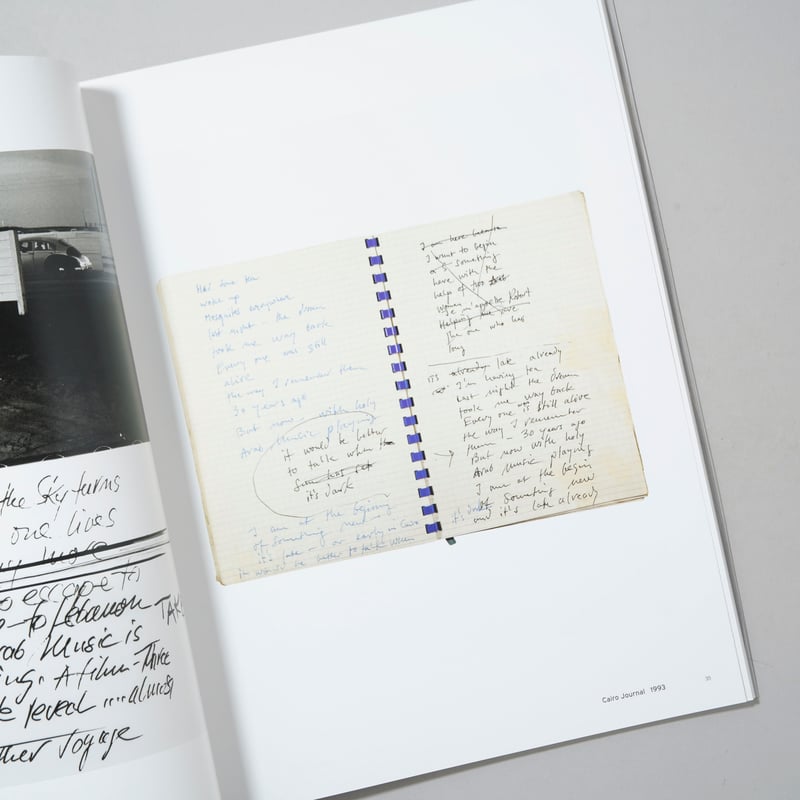 the Sky turns
one lives
more
escape to
to Lebanon TAK
Music is
A film - Three
reveal .... almost
Voyage
wake up
Mosquitos everywhere
last night - the dream
took me way back
Every one was still
alive
the way I remember them
30 years ago
But now - with holy
Arab Music playing
it would be better
to talk when the
Sun has set
it's dark
I am at the begining
of Something new
it's late - or early in Cairo it's dark
it would be better to talk when
I am here because
I want to begin
of Something
here with the
help of
Robert
Helping me
the one who has
long
it's already late already
I'm having tea
Last night the dream
took me way back
Every one is still alive
the way I remember
them - 30 years ago
But now with holy
Arab Music playing
I am at the begin
of Something new
and it's late already
Cairo Journal 1993